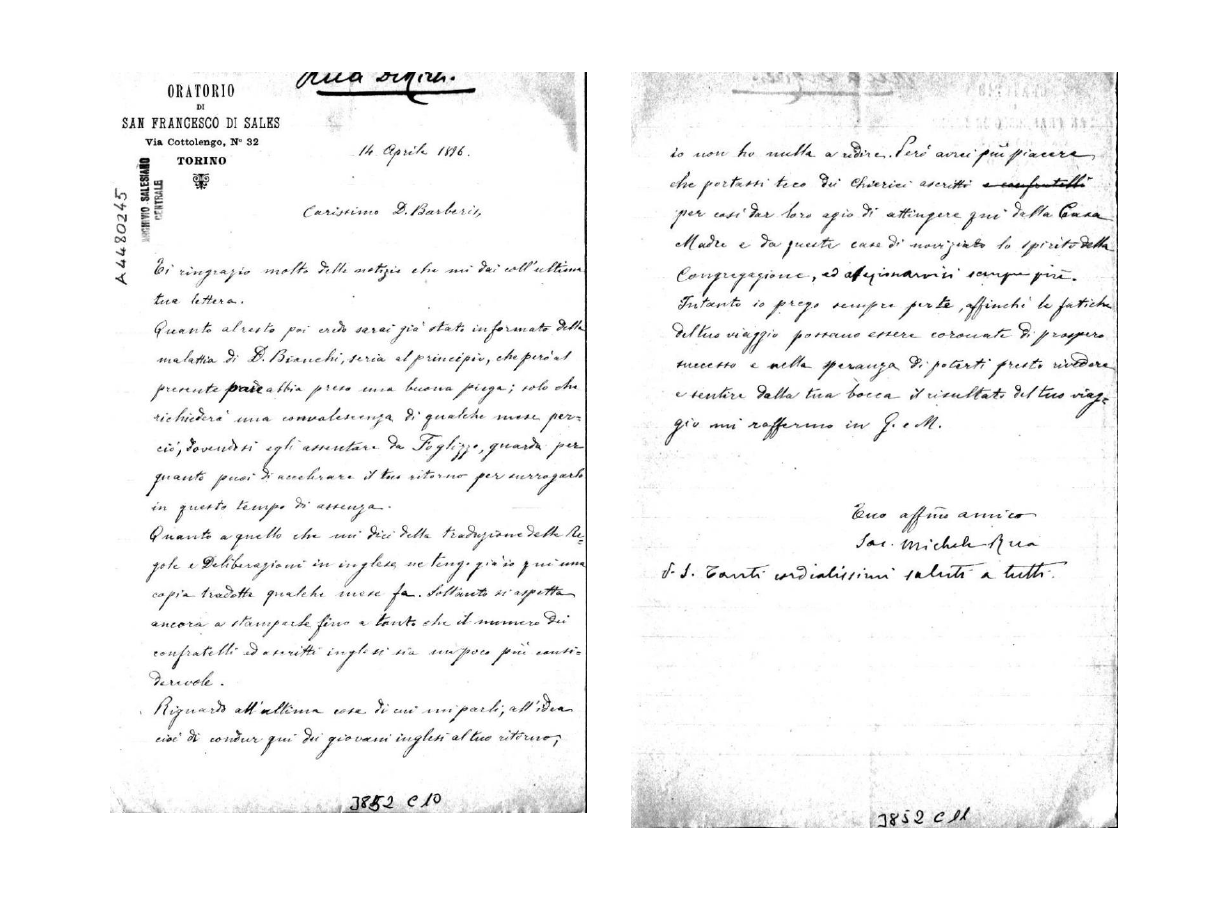 Rua Digit.
ORATORIO
DI
SAN FRANCESCO DI SALES
Via Cottolengo, N° 32
TORINO
ARCHIVIO SALESIANO
CENTRALE
A4480245
14 Aprile 1896.
Carissimo D. Barberis,
Ti ringrazio molto delle notizie che mi dai coll'ultima
tua lettera.
Quanto al resto poi credo serai già stato informato della
malattia di D. Bianchi, seria al principio, che però al
presente pare abbia preso una buona piega; solo che
richiederà una convalescenza di qualche mese per-
ciò, dovendosi egli assentare da Foglizzo, guarda per
quanto puoi di accelerare il tuo ritorno per surrogarlo
in questo tempo di assenza.
Quanto a quello che mi dici della traduzione delle Re-
gole e Deliberazioni in inglese ne tengo già io qui una
copia tradotta qualche mese fa. Soltanto si aspetta
ancora a stamparle fino a tanto che il numero dei
confratelli ed ascritti inglesi sia un poco più consi-
derevole.
Riguardo all'ultima cosa di cui mi parli, all'idea
cioè di condur qui dei giovani inglesi al tuo ritorno,
3852 C 10
io non ho nulla a ridire. Però avrei più piacere
che portassi teco dei chierici ascritti e confratelli
per così dar loro agio di attingere qui dalla Casa
Madre e da queste case di noviziato lo spirito della
Congregazione, ed affezionarvisi sempre più.
Intanto io prego sempre per te, affinché le fatiche
del tuo viaggio possano essere coronate di prospero
successo e nella speranza di poterti presto rivedere
e sentire dalla tua bocca il risultato del tuo viag-
gio mi raffermo in G. e M.
Tuo affmo amico
Sac. Michele Rua
P. S. Tanti cordialissimi saluti a tutti.
3852 C 11